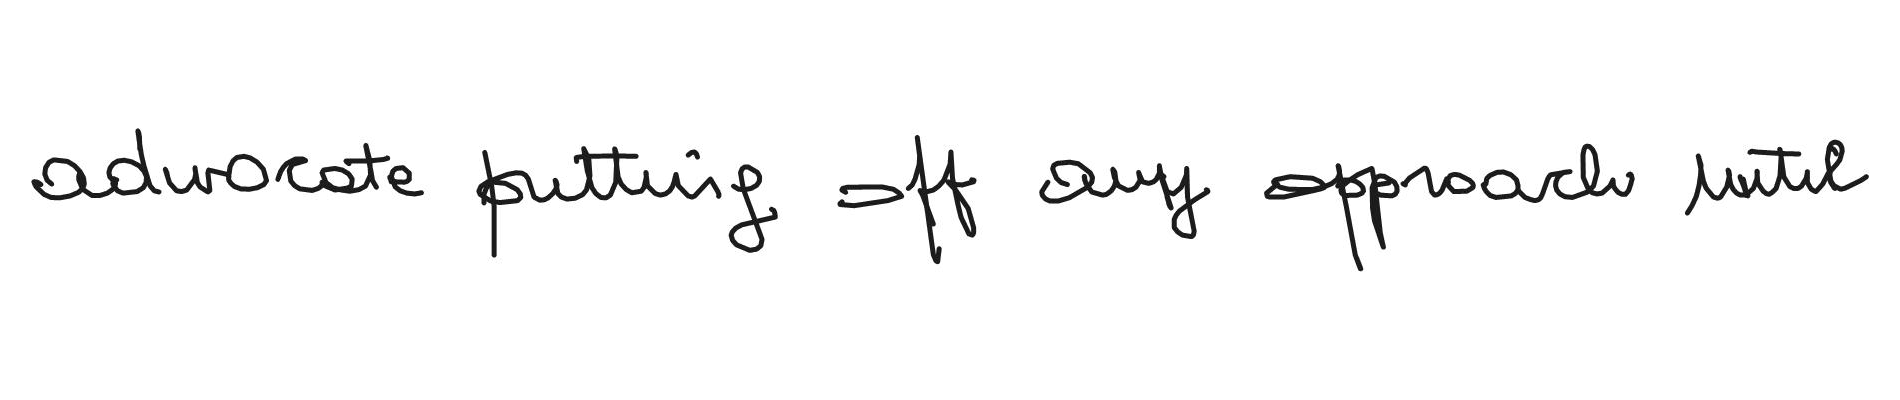 advocate putting off any approach until